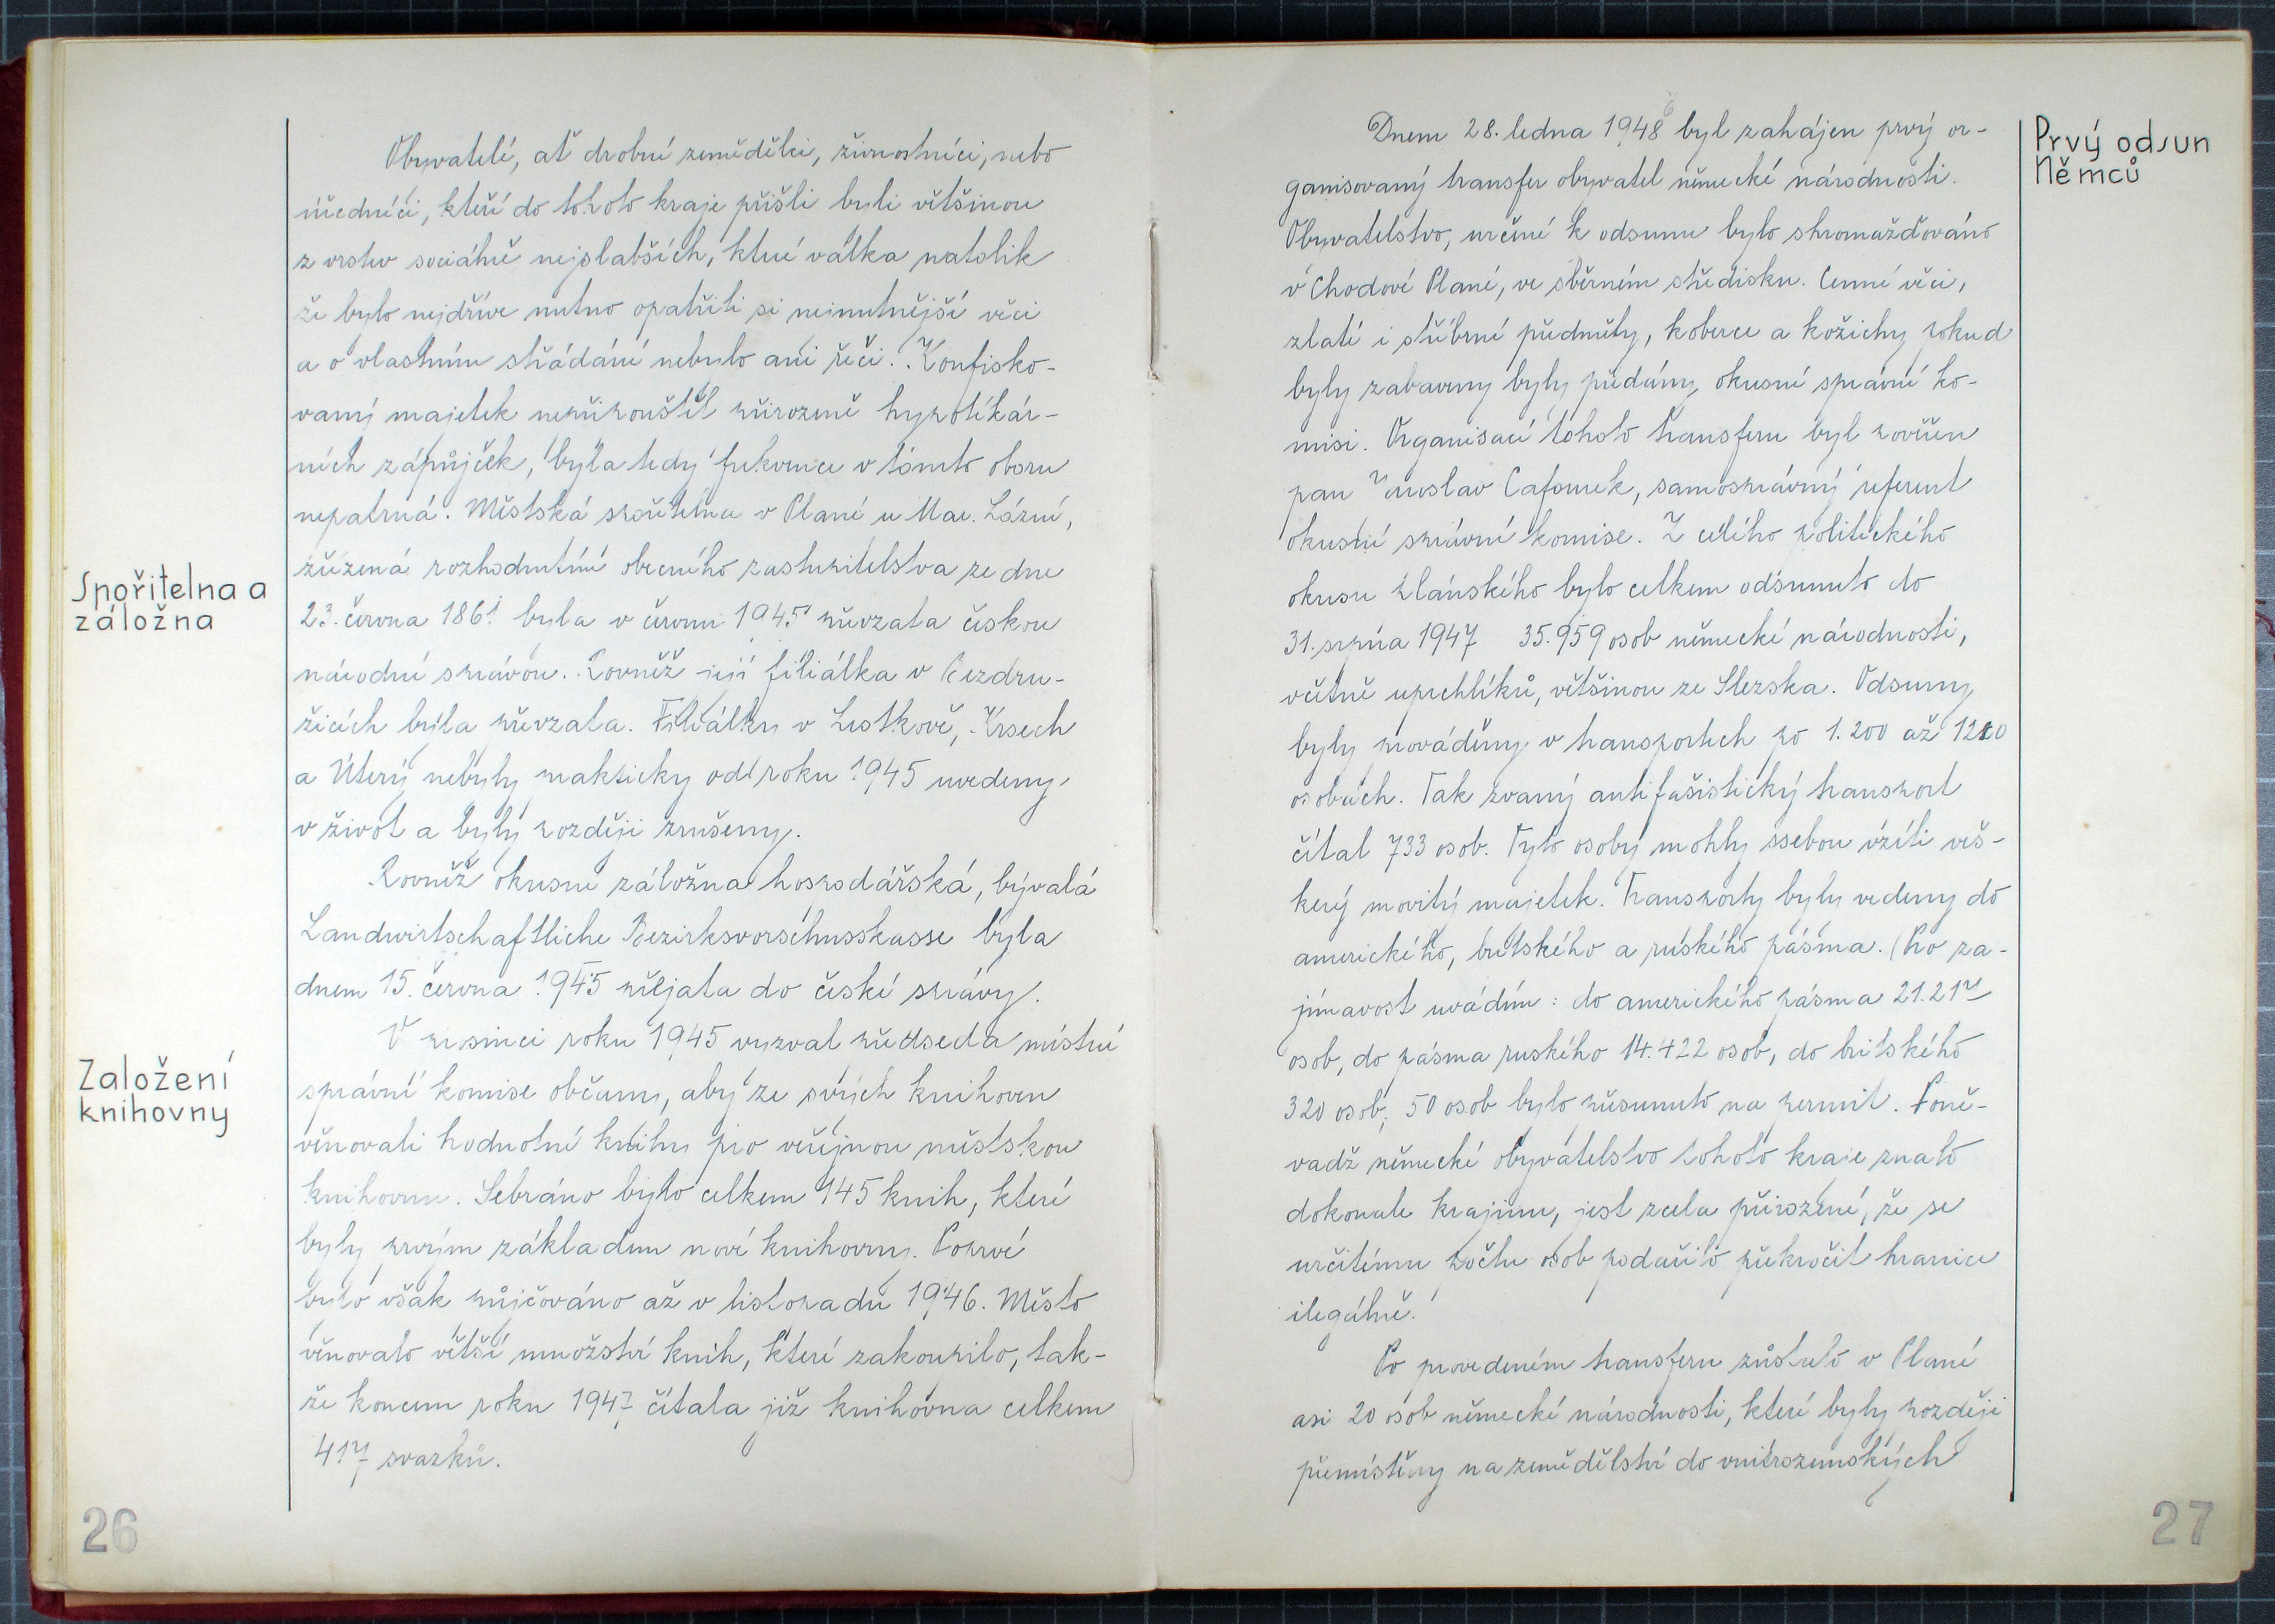 Obyvatelé, ať drobní zemědělci, živnostníci, nebo
úředníci, kteří do tohoto kraje přišli byli většinou
z vrstev sociáhně nejslabších, které válka natolik
že bylo nejdříve nutno opatřiti si nejnutnější věci
a o vlastním střádání nebylo ani řeči. Konfisko-
vaný majetek nepřipouštěl přirozeně hypotékár-
ních zápůjček, byla tedy frekvence v tomto oboru
nepatrná. Městská spořitelna v Plané u Mar. Lázní,
zřízená rozhodnutím obecního zastupitelstva ze dne
Spořitelna a
záložna
23. června 1861 byla v červnu 1945 převzata českou
národní správou. Rovněž její filiálka v Bezdru-
žicích byla převzata. Filiálky v Lestkově, Krsech
a Úterý nebyly prakticky od roku 1945 uvedeny
v život a byly později zrušeny.
Rovněž okresní záložna hospodářská, bývalá
Landwirtschaftliche Bezirksvorschusskasse byla
dnem 15. června 1945 přejata do české správy.
V prosinci roku 1945 vyzval předseda místní
Založení
knihovny
správní komise občany, aby ze svých knihoven
věnovali hodnotné knihy pro veřejnou městskou
knihovnu. Sebráno bylo celkem 145 knih, které
byly prvým základem nové knihovny. Poprvé
bylo však půjčováno až v listopadu 1946. Město
věnovalo větší množství knih, které zakoupilo, tak-
že koncem roku 1947 čítala již knihovna celkem
417 svazků.
26
Dnem 28. ledna 1948 6 byl zahájen prvý or-
Prvý odsun
Němců
ganisovaný transfer obyvatel německé národnosti.
Obyvatelstvo, určené k odsunu bylo shromažďováno
v Chodové Plané, ve sběrném středisku. Cenné věci,
zlaté i stříbrné předměty, koberce a kožichy pokud
byly zabaveny byly předány okresní správní ko-
misi. Organisací tohoto transferu byl pověřen
pan Jaroslav Cafourek, samosprávný referent
okresní správní komise. Z celého politického
okresu plánského bylo celkem odsunuto do
31. srpna 1947 35.959 osob německé národnosti,
včetně uprchlíků, většinou ze Slezska. Odsuny
byly prováděny v transportech po 1.200 až 1210
osobách. Tak zvaný antifašistický transport
čítal 733 osob. Tyto osoby mohly ssebou vzíti veš-
kerý movitý majetek. Transporty byly vedeny do
amerického, britského a ruského pásma. (Pro za-
jímavost uvádím: do amerického pásma 21.217
osob, do pásma ruského 14.422 osob, do britského
320 osob, 50 osob bylo přesunuto na permit. Poně-
vadž německé obyvatelstvo tohoto kraje znalo
dokonale krajinu, jest zcela přirozené, že se
určitému počtu osob podařilo překročit hranice
ilegálně.
Po provedeném transferu zůstalo v Plané
asi 20 osob německé národnosti, které byly později
přemístěny na zemědělství do vnitrozemských
27